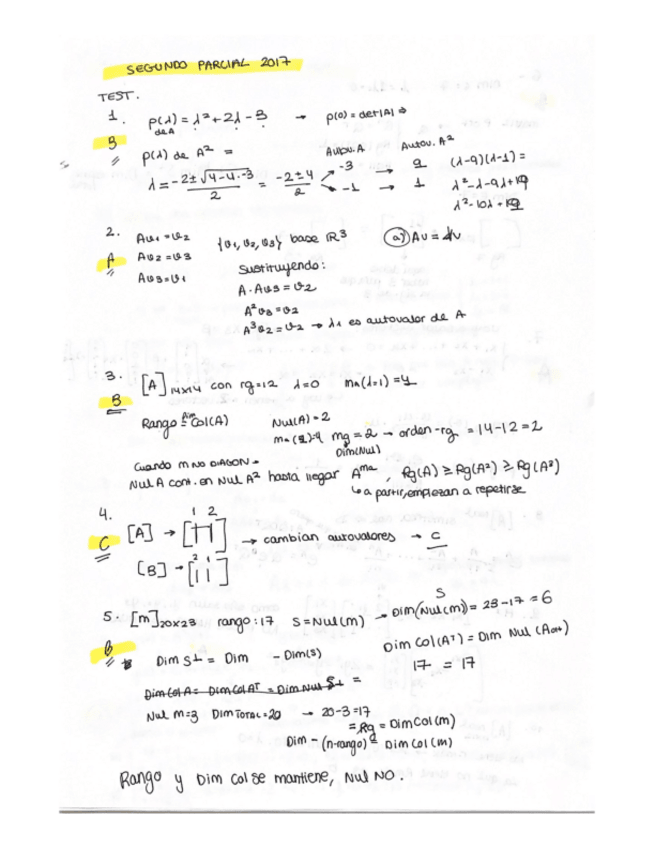 SEGUNDO PARCIAL 2017
TEST.
1. p(λ) = λ²+2λ-3 → p(0) = det|A| ⇒
de A
B
p(λ) de A² =
Autov. A Autov. A²
λ = -2±√4-4·-3 / 2 = -2±4 / 2
-3 → 9
-1 → 1
(λ-9)(λ-1) =
λ²-λ-9λ+9
λ²-10λ+9
2. Av1 = v2 {v1, v2, v3} base ℝ³ a) Av = λv
A Av2 = v3
Av3 = v1
Sustituyendo:
A·Av3 = v2
A²v3 = v2
A³v2 = v2 → λ1 es autovalor de A
3. [A]14x14 con rg=12 λ=0 ma(λ=1)=4
B
Rango = dim Col(A) Nul(A) = 2
mg = 2 → orden-rg = 14-12 = 2
Dim(Nul)
Cuando m NO DIAGON =
Nul A cont. en Nul A² hasta llegar A^ma, Rg(A) ≥ Rg(A²) ≥ Rg(A³)
↳ a partir, empiezan a repetirse
4. 1 2
C [A] → [ ] → cambian autovalores → C
2 1
[B] → [ ]
5. [m]20x23 rango: 17 S = Nul(m) → Dim(Nul(m)) = 23-17 = 6
S
B Dim S⊥ = Dim - Dim(S)
Dim Col(A^T) = Dim Nul
17 = 17
Dim Col A = Dim Col A^T = Dim Nul S⊥ =
Nul m=3 Dim Total=20 → 20-3=17
= Rg = Dim Col(m)
Dim - (n-rango) = Dim Col(m)
Rango y Dim Col se mantiene, Nul NO.